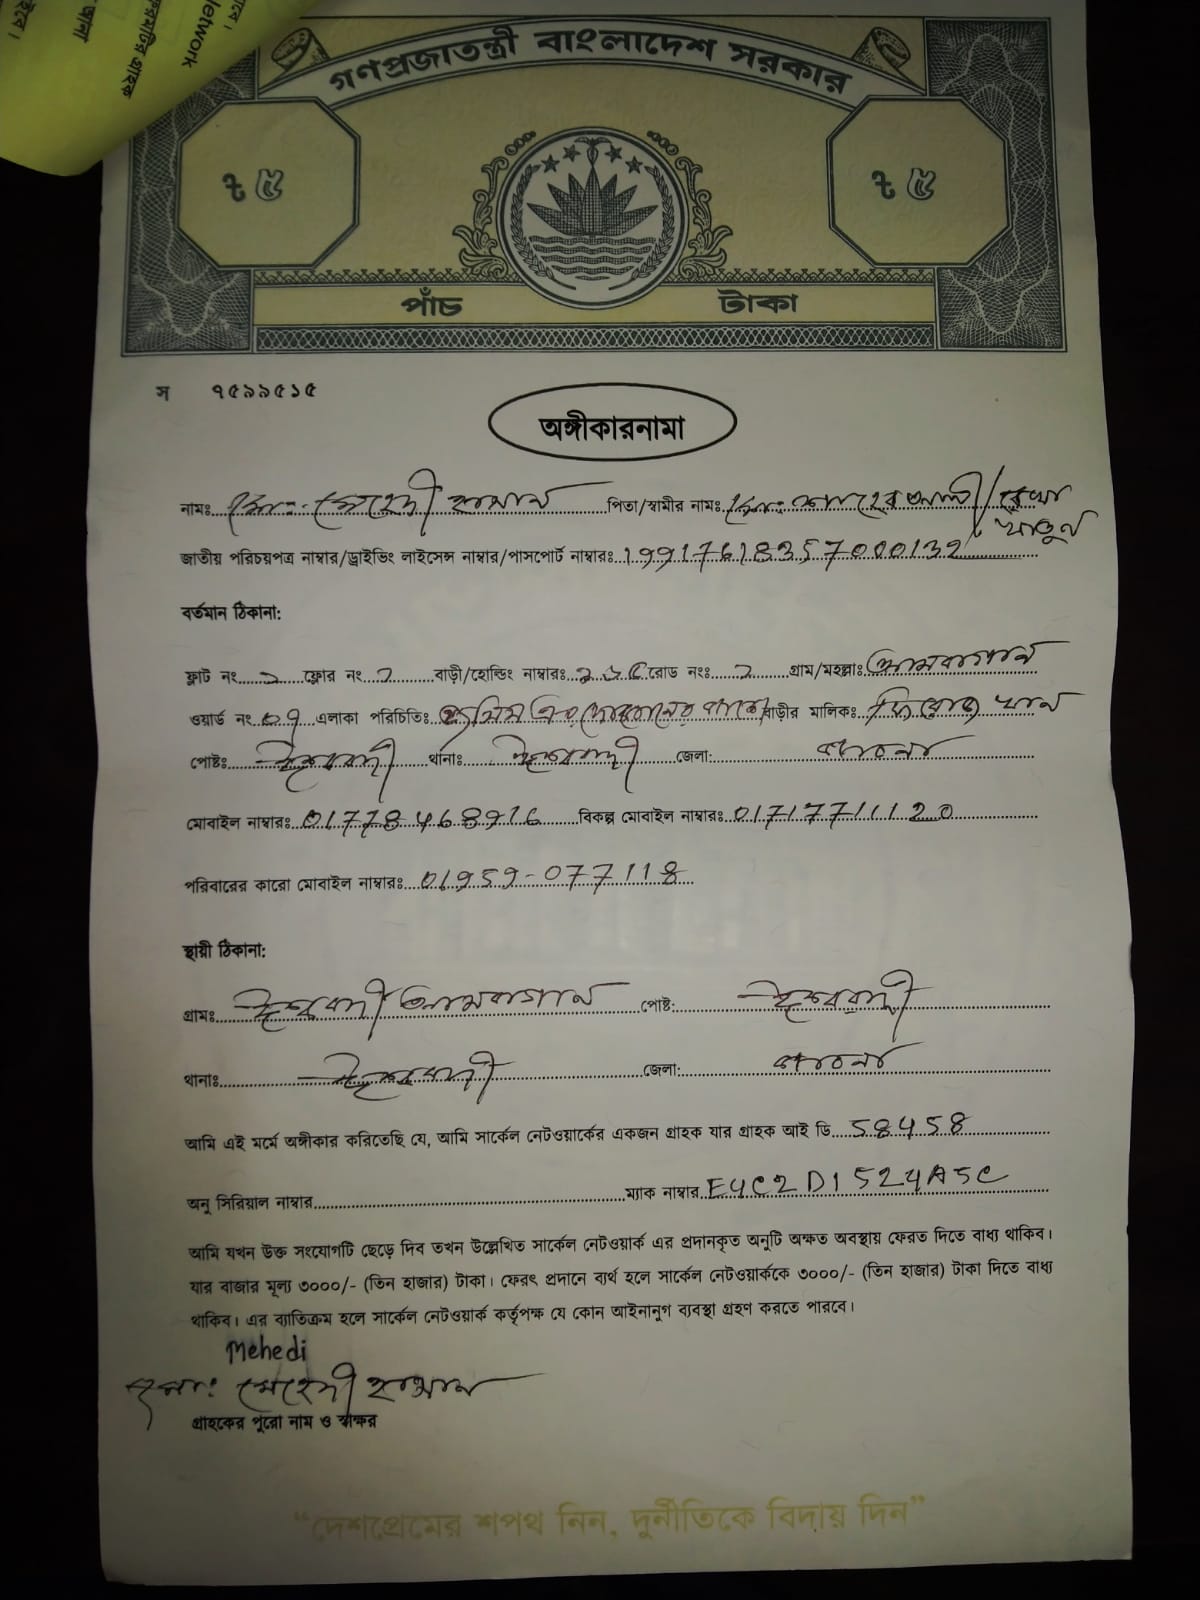 গণপ্রজাতন্ত্রী বাংলাদেশ সরকার
৳ ৫ ৳ ৫
পাঁচ টাকা
স ৭৫৯৯৫১৫
অঙ্গীকারনামা
নামঃ মোঃ মেহেদী হাসান পিতা/স্বামীর নামঃ মোঃ শাহের আলী/রেখা
খাতুন
জাতীয় পরিচয়পত্র নাম্বার/ড্রাইভিং লাইসেন্স নাম্বার/পাসপোর্ট নাম্বারঃ 19917618357000132
বর্তমান ঠিকানা:
ফ্লাট নং ২ ফ্লোর নং ২ বাড়ী/হোল্ডিং নাম্বারঃ রোড নংঃ ২ গ্রাম/মহল্লাঃ আমবাগান
ওয়ার্ড নং ০৭ এলাকা পরিচিতিঃ এর দোকানের পাশে বাড়ীর মালিকঃ ফিরোজ খান
পোষ্টঃ ঈশ্বরদী থানাঃ ঈশ্বরদী জেলা: পাবনা
মোবাইল নাম্বারঃ 01778468916 বিকল্প মোবাইল নাম্বারঃ 01717711120
পরিবারের কারো মোবাইল নাম্বারঃ 01959-077118
স্থায়ী ঠিকানা:
গ্রামঃ ঈশ্বরদী আমবাগান পোষ্ট: ঈশ্বরদী
থানাঃ ঈশ্বরদী জেলা: পাবনা
আমি এই মর্মে অঙ্গীকার করিতেছি যে, আমি সার্কেল নেটওয়ার্কের একজন গ্রাহক যার গ্রাহক আই ডি 58458
অনু সিরিয়াল নাম্বার ম্যাক নাম্বার E4C2D1524A5C
আমি যখন উক্ত সংযোগটি ছেড়ে দিব তখন উল্লেখিত সার্কেল নেটওয়ার্ক এর প্রদানকৃত অনুটি অক্ষত অবস্থায় ফেরত দিতে বাধ্য থাকিব।
যার বাজার মূল্য ৩০০০/- (তিন হাজার) টাকা। ফেরৎ প্রদানে ব্যর্থ হলে সার্কেল নেটওয়ার্ককে ৩০০০/- (তিন হাজার) টাকা দিতে বাধ্য
থাকিব। এর ব্যাতিক্রম হলে সার্কেল নেটওয়ার্ক কর্তৃপক্ষ যে কোন আইনানুগ ব্যবস্থা গ্রহণ করতে পারবে।
Mehedi
মোঃ মেহেদী হাসান
গ্রাহকের পুরো নাম ও স্বাক্ষর
“দেশপ্রেমের শপথ নিন, দুর্নীতিকে বিদায় দিন”